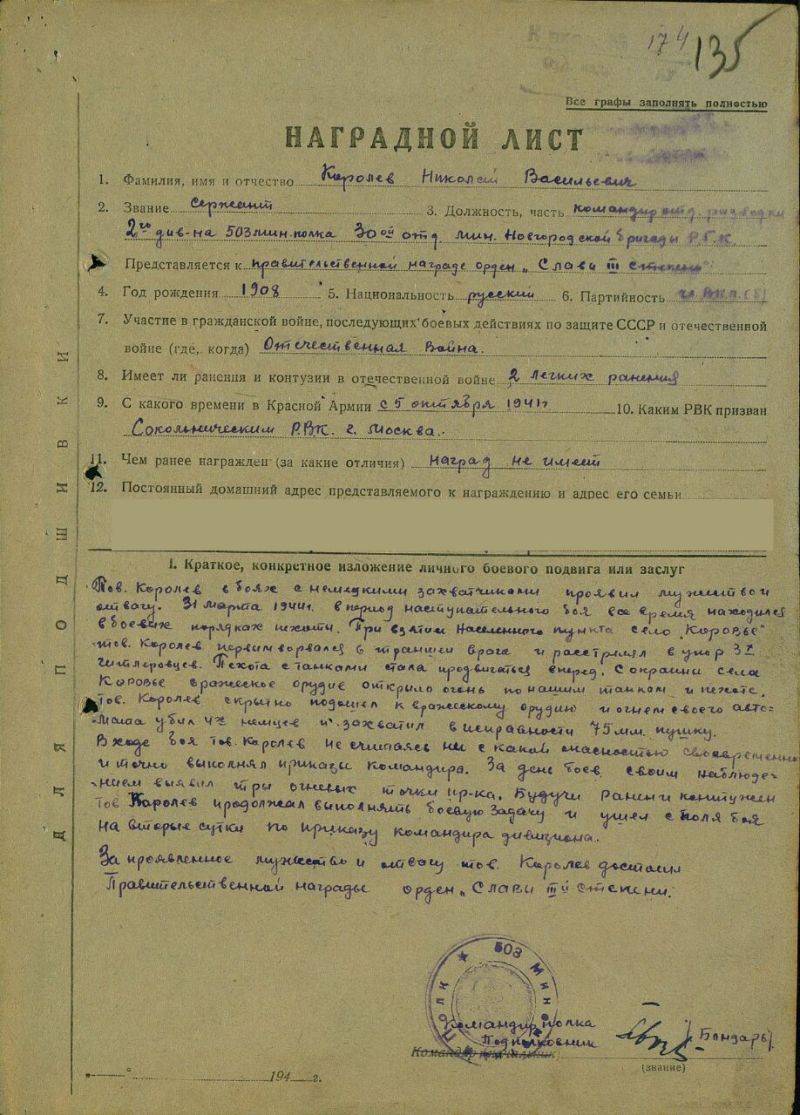 174 135
Все графы заполнять полностью
НАГРАДНОЙ ЛИСТ
1. Фамилия, имя и отчество Королев Николай Васильевич
2. Звание Сержант 3. Должность, часть командир отд. разведки
2го див-на 503 мин. полка 30ой отд. мин. Новгородской бригады Р.Г.К.
Представляется к правительственной награде орден „Славы III степени"
4. Год рождения 1908 5. Национальность русский 6. Партийность чл. ВКП(б)
7. Участие в гражданской войне, последующих боевых действиях по защите СССР и отечественной
войне (где, когда) Отечественная Война.
8. Имеет ли ранения и контузии в отечественной войне 2 легких ранения
9. С какого времени в Красной Армии с 5 октября 1941г 10. Каким РВК призван
Сокольническим РВК. г. Москва.
11. Чем ранее награжден (за какие отличия) наград не имеет
12. Постоянный домашний адрес представляемого к награждению и адрес его семьи
1. Краткое, конкретное изложение личного боевого подвига или заслуг
Тов. Королев в боях с немецкими захватчиками проявил мужество и
отвагу. 31 марта 1944г. в период наступательного боя все время находился
в боевых порядках пехоты. При взятии населенного пункта село „Коровье"
тов. Королев первым ворвался в траншеи врага и расстрелял в упор 3х
гитлеровцев. Пехота с танками стала продвигаться вперед. С окраины села
Коровье вражеское орудие открыло огонь по нашим танкам и пехоте.
Тов. Королев скрытно подошел к вражескому орудию и огнем своего авто-
мата убил 4х немцев и захватил в исправности 75 мм. пушку.
В ходе боя тов. Королев не считаясь ни с какой опасностью своевременно
и точно выполнял приказы командира. За день боев своим наблюде-
нием выявил три огневых точки пр-ка. Будучи ранен и контужен
тов Королев продолжал выполнять боевую задачу и ушел с поля боя
на вторые сутки по приказу командира дивизиона.
За проявленное мужество и отвагу тов. Королев достоин
Правительственной награды орден „Славы III й степени.
503 МИН
ПОЛК
Командир полка
Подполковник /Бондарь/
(звание)
194 г.
ДЛЯ ПОДШИВКИ